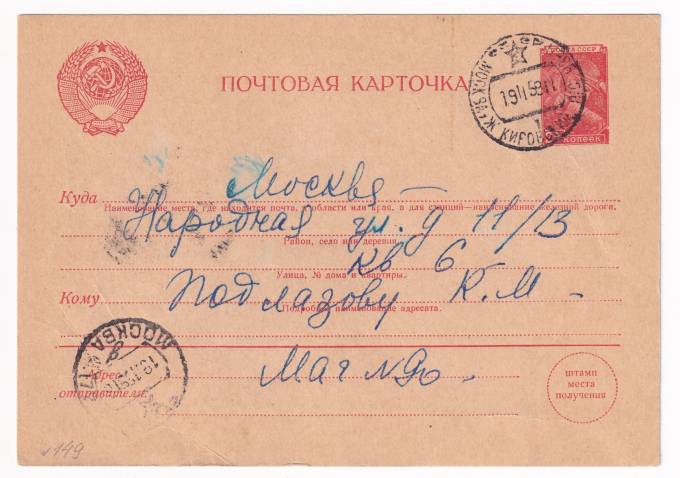 ПОЧТОВАЯ КАРТОЧКА
ПОЧТА СССР
КОПЕЕК
МОСКВА Ж. КИРОВСК
19 11 59 11
Куда Москва –
Наименование места, где находится почта, и области или края, а для станций—наименование железной дороги.
Народная ул. д 11/13
Район, село или деревня
кв 6
Улица, № дома и квартиры.
Кому Подлазову К. М –
Подробное наименование адресата.
МОСКВА
Адрес отправителя:
Маг №90
штамп
места
получения
№149